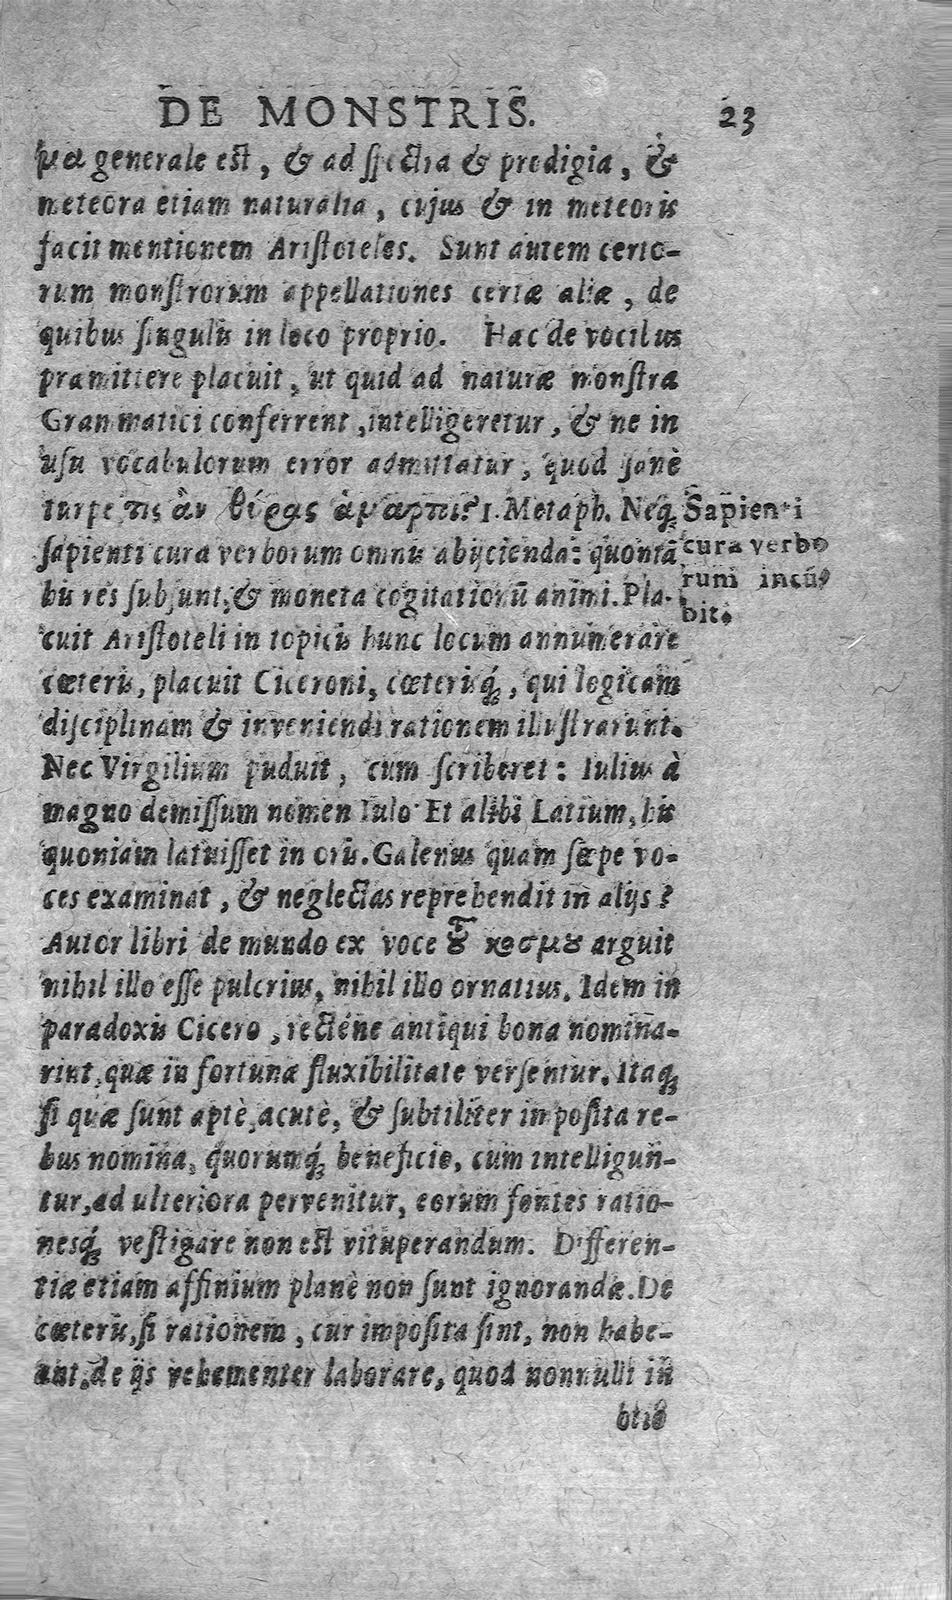 DE MONSTRIS. 23
μα generale est, & ad spectra & prodigia, &
meteora etiam naturalia, cujus & in meteoris
facit mentionem Aristoteles. Sunt autem certo-
rum monstrorum appellationes certæ aliæ, de
quibus singulis in loco proprio. Hac de vocibus
præmittere placuit, ut quid ad naturæ monstra
Grammatici conferrent, intelligeretur, & ne in
usu vocabulorum error admittatur, quod sanè
turpe τις ἂν 1. Metaph. Neq;
sapienti cura verborum omnis abijcienda: quoniā
his res subsunt, & moneta cogitationū animi. Pla-
cuit Aristoteli in topicis hunc locum annumerare
cæteris, placuit Ciceroni, cæterisq́;, qui logicam
disciplinam & inveniendi rationem illustrarunt.
Nec Virgilium puduit, cum scriberet: Iulius à
magno demissum nomen Iulo Et alibi Latium, his
quoniam latuisset in oris. Galenus quam sæpe vo-
ces examinat, & neglectas reprehendit in alijs?
Autor libri de mundo ex voce τȣ͂ κοσμȣ arguit
nihil illo esse pulcrius, nihil illo ornatius. Idem in
paradoxis Cicero, recténe antiqui bona nomina-
rint, quæ in fortunæ fluxibilitate versentur. Itaq;
si quæ sunt aptè, acutè, & subtiliter imposita re-
bus nomina, quorumq́; beneficio, cum intelligun-
tur, ad ulteriora pervenitur, eorum fontes ratio-
nesq́; vestigare non est vituperandum. Differen-
tiæ etiam affinium planè non sunt ignorandæ. De
cæteris, si rationem, cur imposita sint, non habe-
ant, de ijs vehementer laborare, quod nonnulli in
Sapienti
cura verbo
rum incū-
bit.